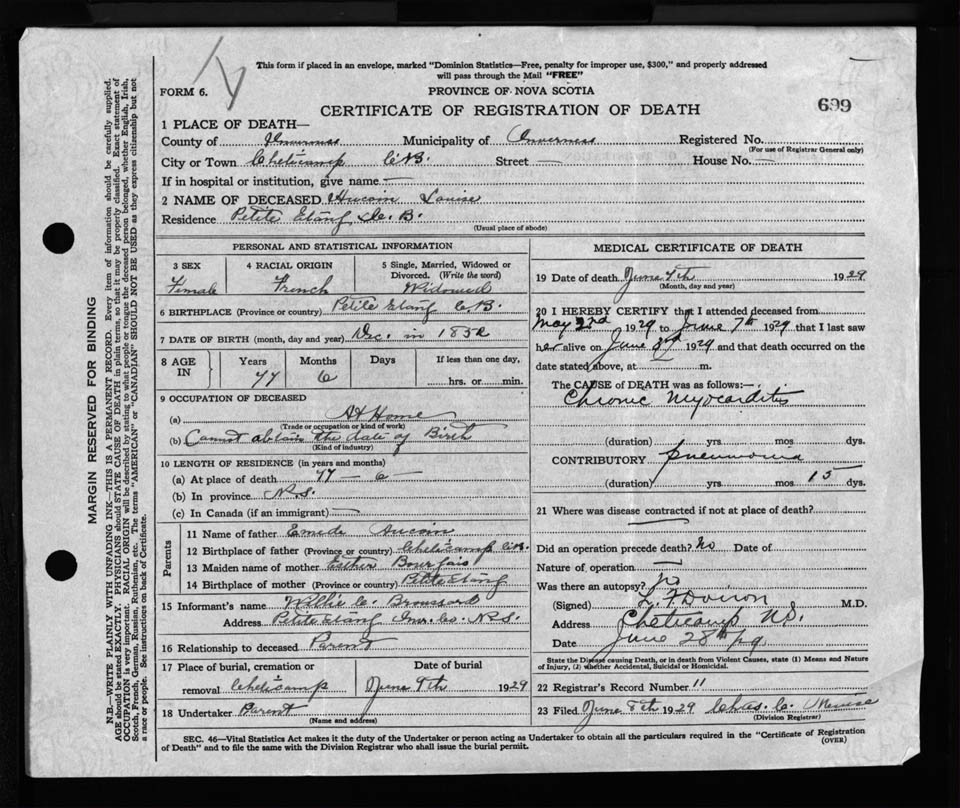 This form if placed in an envelope, marked "Dominion Statistics—Free, penalty for improper use, $300," and properly addressed
will pass through the Mail "FREE"
FORM 6.
PROVINCE OF NOVA SCOTIA
CERTIFICATE OF REGISTRATION OF DEATH
699
1 PLACE OF DEATH—
County of Inverness Municipality of Inverness Registered No.
(For use of Registrar General only)
City or Town Cheticamp C.B. Street — House No. —
If in hospital or institution, give name —
2 NAME OF DECEASED Aucoin Louise
Residence Petite Etang C. B.
(Usual place of abode)
PERSONAL AND STATISTICAL INFORMATION
3 SEX 4 RACIAL ORIGIN 5 Single, Married, Widowed or Divorced. (Write the word)
Female French Widowed
6 BIRTHPLACE (Province or country) Petite Etang C.B.
7 DATE OF BIRTH (month, day and year) Dec. in 1852
8 AGE IN Years Months Days If less than one day,
77 6 hrs. or min.
9 OCCUPATION OF DECEASED
(a) At Home
(Trade or occupation or kind of work)
(b) Cannot obtain the date of Birth
(Kind of industry)
10 LENGTH OF RESIDENCE (in years and months)
(a) At place of death 77 — 6
(b) In province N.S.
(c) In Canada (if an immigrant) —
Parents
11 Name of father Emede Aucoin
12 Birthplace of father (Province or country) Cheticamp C.B.
13 Maiden name of mother Esther Bourgeois
14 Birthplace of mother (Province or country) Petite Etang
15 Informant's name Willie C. Broussard
Address Petite Etang Inv. Co. N.S.
16 Relationship to deceased Parent
17 Place of burial, cremation or removal Cheticamp Date of burial June 9th 1929
18 Undertaker Parent
(Name and address)
MEDICAL CERTIFICATE OF DEATH
19 Date of death June 7th 1929
(Month, day and year)
20 I HEREBY CERTIFY that I attended deceased from
May 23rd 1929 to June 7th 1929 that I last saw
her alive on June 1929 and that death occurred on the
date stated above, at — m.
The CAUSE of DEATH was as follows:—
Chronic Myocarditis
(duration) yrs. mos. dys.
CONTRIBUTORY pneumonia
(duration) yrs. mos. 15 dys.
21 Where was disease contracted if not at place of death?
—
Did an operation precede death? No Date of
Nature of operation —
Was there an autopsy? No
(Signed) Doiron M.D.
Address Cheticamp N.S.
Date June 28th
State the Disease causing Death, or in death from Violent Causes, state (1) Means and Nature
of Injury, (2) whether Accidental, Suicidal or Homicidal.
22 Registrar's Record Number 11
23 Filed June 8th 1929 Chas. C.
(Division Registrar)
SEC. 46—Vital Statistics Act makes it the duty of the Undertaker or person acting as Undertaker to obtain all the particulars required in the "Certificate of Registration
of Death" and to file the same with the Division Registrar who shall issue the burial permit.
(OVER)
MARGIN RESERVED FOR BINDING
N.B.—WRITE PLAINLY WITH UNFADING INK—THIS IS A PERMANENT RECORD. Every item of information should be carefully supplied.
AGE should be stated EXACTLY. PHYSICIANS should STATE CAUSE OF DEATH in plain terms, so that it may be properly classified. Exact statement of
OCCUPATION is very important. RACIAL ORIGIN will be described by stating to what people or tongue the deceased person belonged, whether English, Irish,
Scotch, French, German, Russian, Ruthenian, etc. The terms "AMERICAN" or "CANADIAN" SHOULD NOT BE USED as they express citizenship but not
a race or people. See instructions on back of Certificate.